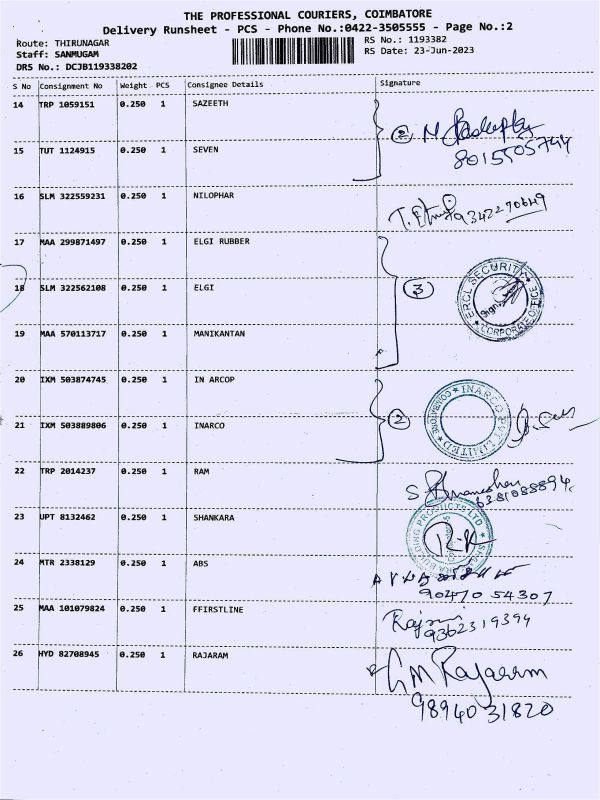 THE PROFESSIONAL COURIERS, COIMBATORE
Delivery Runsheet - PCS - Phone No.:0422-3505555 - Page No.:2
Route: THIRUNAGAR RS No.: 1193382
Staff: SANMUGAM RS Date: 23-Jun-2023
DRS No.: DCJB119338202
S No Consignment No Weight PCS Consignee Details Signature
14 TRP 1059151 0.250 1 SAZEETH
2
8015505744
15 TUT 1124915 0.250 1 SEVEN
16 SLM 322559231 0.250 1 NILOPHAR
9342270649
17 MAA 299871497 0.250 1 ELGI RUBBER
18 SLM 322562108 0.250 1 ELGI 3
ERCL SECURITY
Sign
CORPORATE OFFICE
19 MAA 570113717 0.250 1 MANIKANTAN
20 IXM 503874745 0.250 1 IN ARCOP
21 IXM 503889806 0.250 1 INARCO 2
INARCO PVT LIMITED
22 TRP 2014237 0.250 1 RAM
6381088894
23 UPT 8132462 0.250 1 SHANKARA
BUILDING PRODUCTS LTD
R.K
24 MTR 2338129 0.250 1 ABS
90470 54307
25 MAA 101079824 0.250 1 FFIRSTLINE
9362319394
26 HYD 82708945 0.250 1 RAJARAM
G M Rajaram
98940 31820